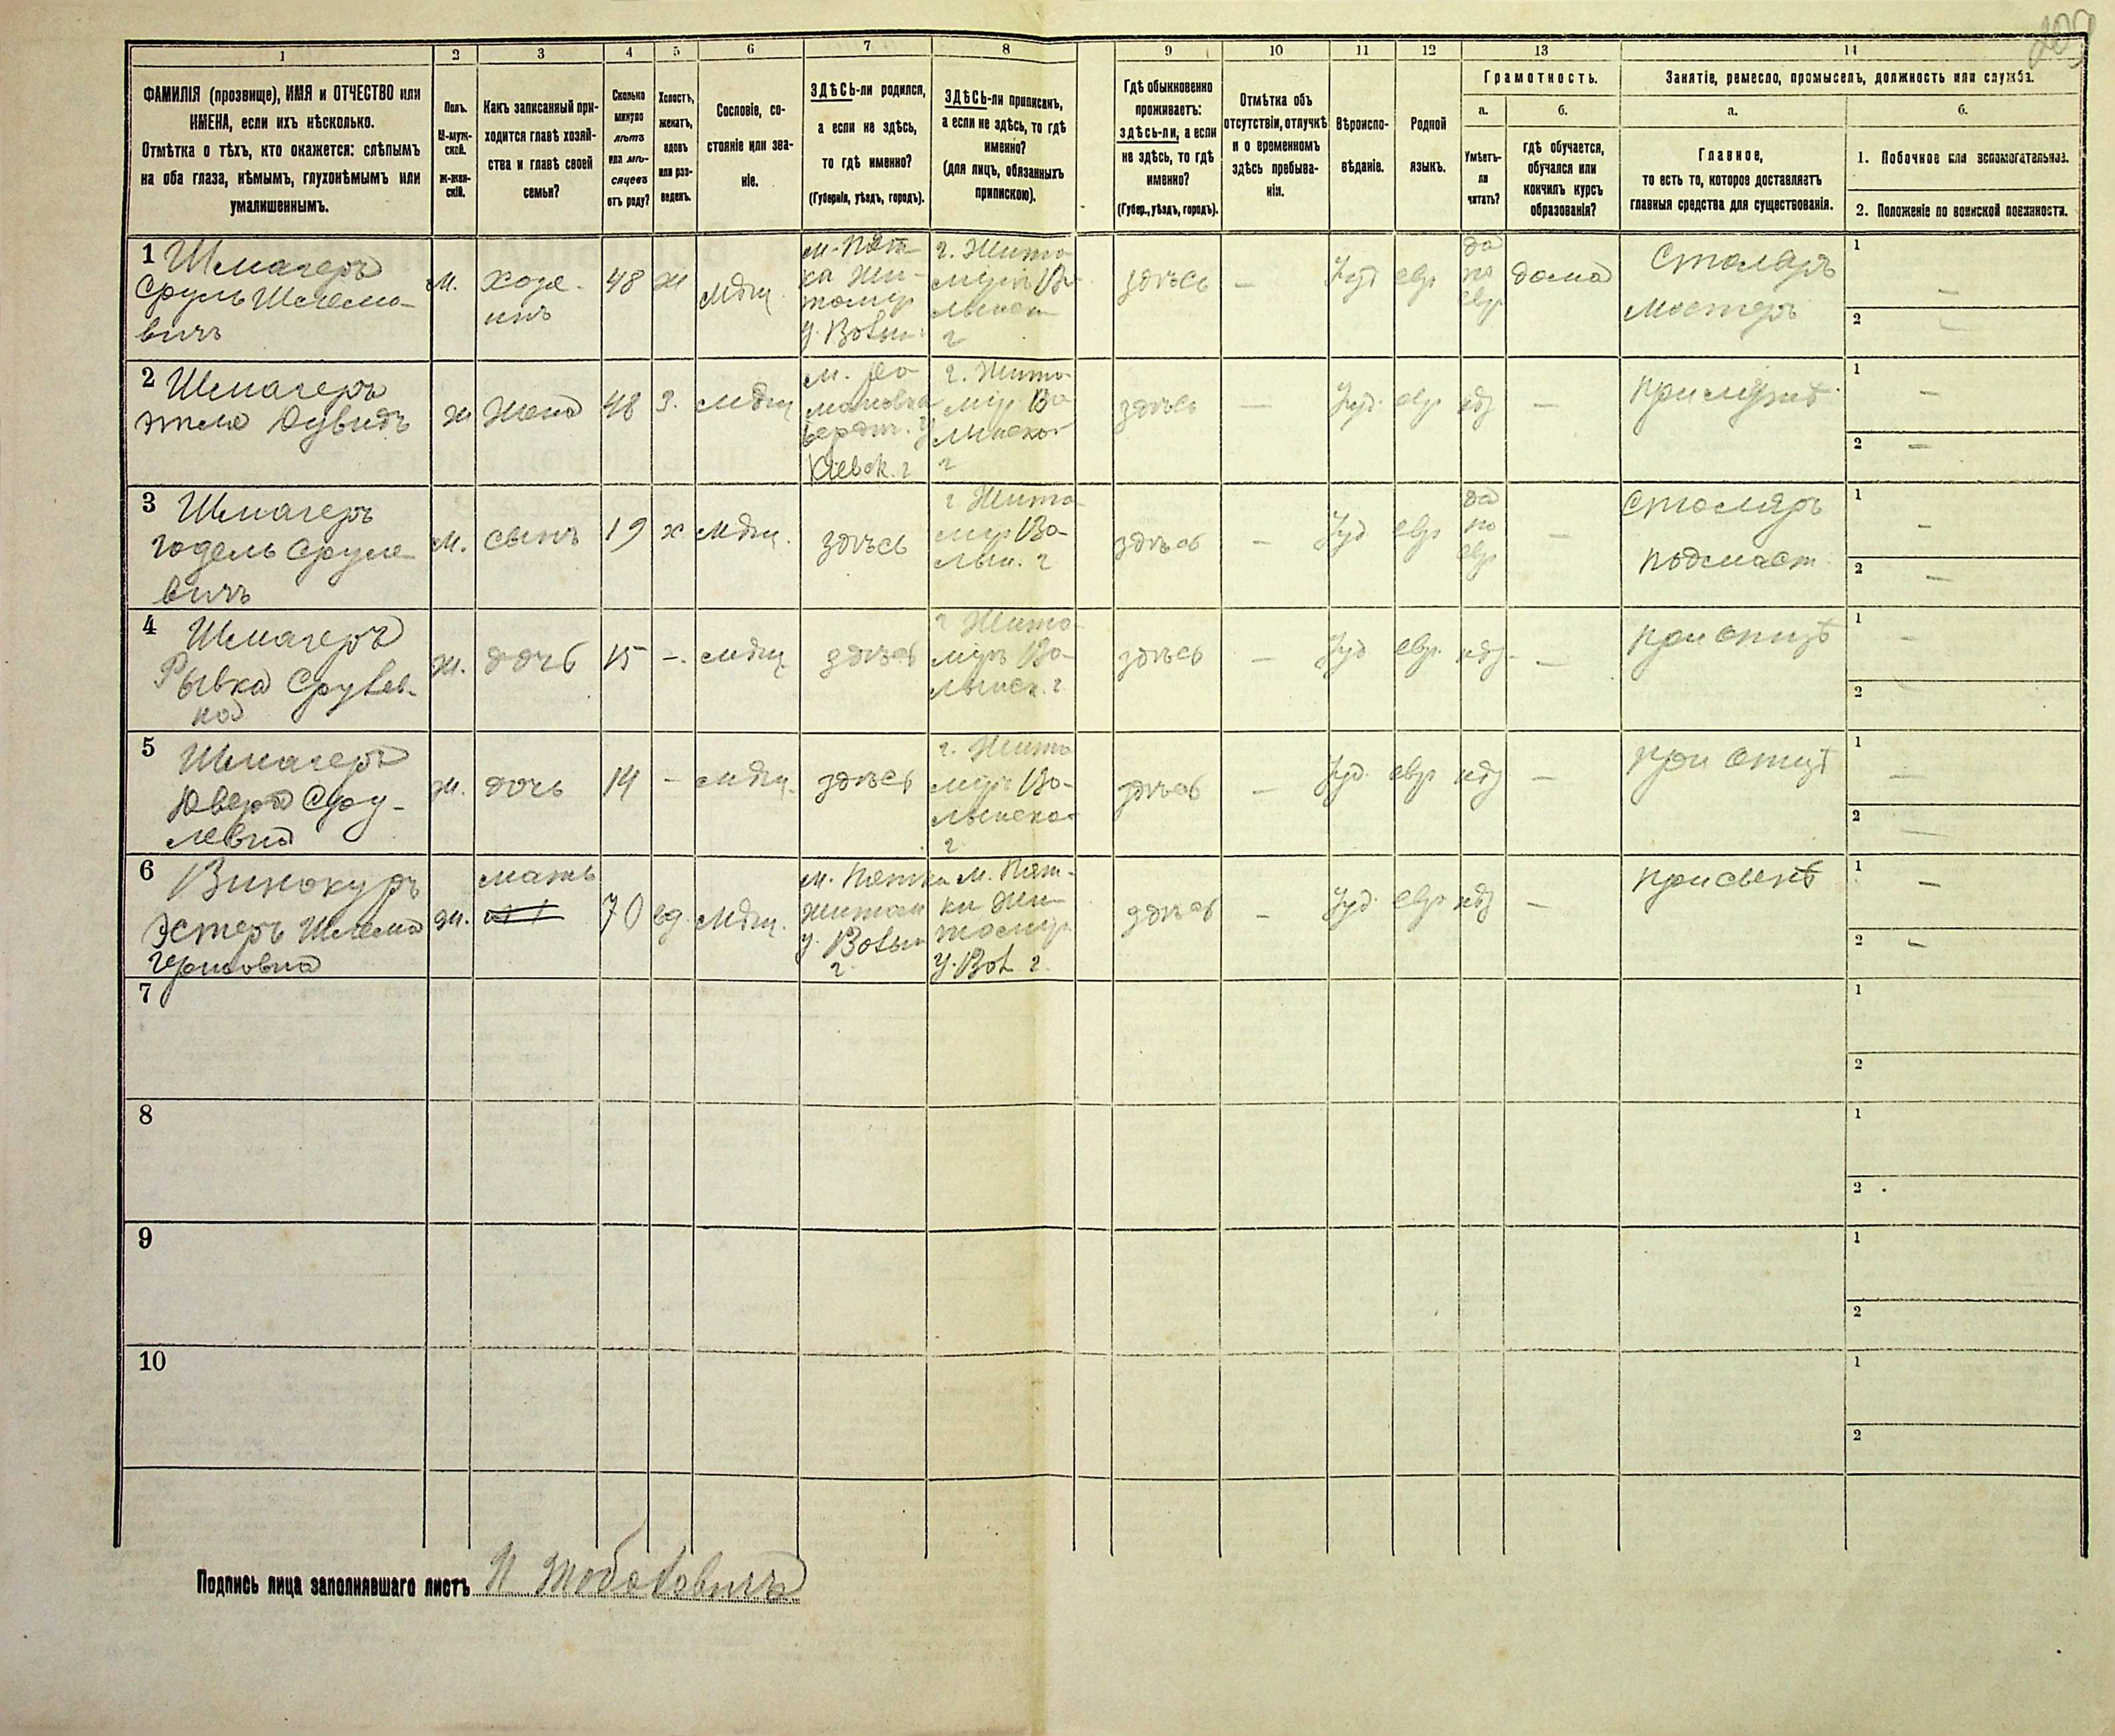 203
1 2 3 4 5 6 7 8 9 10 11 12 13 14
ФАМИЛІЯ (прозвище), ИМЯ и ОТЧЕСТВО или
ИМЕНА, если ихъ нѣсколько.
Отмѣтка о тѣхъ, кто окажется: слѣпымъ
на оба глаза, нѣмымъ, глухонѣмымъ или
умалишеннымъ.
Полъ.
М-муж-
ской.
Ж-жен-
скій.
Какъ записанный при-
ходится главѣ хозяй-
ства и главѣ своей
семьи?
Сколько
минуло
лѣтъ
или мѣ-
сяцевъ
отъ роду?
Холостъ,
женатъ,
вдовъ
или раз-
веденъ.
Сословіе, со-
стояніе или зва-
ніе.
ЗДѢСЬ-ли родился,
а если не здѣсь,
то гдѣ именно?
(Губернія, уѣздъ, городъ).
ЗДѢСЬ-ли приписанъ,
а если не здѣсь, то гдѣ
именно?
(для лицъ, обязанныхъ
припискою).
Гдѣ обыкновенно
проживаетъ:
здѣсь-ли, а если
не здѣсь, то гдѣ
именно?
(Губер., уѣздъ, городъ).
Отмѣтка объ
отсутствіи, отлучкѣ
и о временномъ
здѣсь пребыва-
ніи.
Вѣроиспо-
вѣданіе.
Родной
языкъ.
Грамотность.
а.
Умѣетъ-
ли
читать?
б.
гдѣ обучается,
обучался или
кончилъ курсъ
образованія?
Занятіе, ремесло, промыселъ, должность или служба.
а.
Главное,
то есть то, которое доставляетъ
главныя средства для существованія.
б.
1. Побочное или вспомогательное.
2. Положеніе по воинской повинности.
1 Шмагеръ
Сруль Шлемо-
вичъ
м.
хозя-
инъ
48
ж
мѣщ
м. Пят-
ка Жи-
томир
у. Волын г
г. Жито
миръ Во-
лынск
г
здѣсь
—
Іуд
евр
да
по
евр
дома
Столяръ
мастеръ
1 —
2 —
2 Шмагеръ
Этля Дувидъ
ж
жена
48
З.
мѣщ
м. Ро
мановка
Бердич. у
Кіевск. г
г. Жито-
мир Во
лынской
г
здѣсь
—
Іуд.
евр
нѣт
—
при мужѣ
1 —
2 —
3 Шмагеръ
Годель Сруле
вичъ
м.
сынъ
19
х
мѣщ.
здѣсь
г Жито
мир Во-
лын. г
здѣсь
—
Іуд
евр
да
по
евр
—
столяръ
подмаст
1 —
2 —
4 Шмагеръ
Рывка Срулев-
на
ж.
дочь
15
—.
мѣщ
здѣсь
г Жито-
миръ Во-
лынск. г.
здѣсь
—
Іуд
евр.
нѣт.
—
при отцѣ
1 —
2 —
5 Шмагеръ
Сру-
левна
ж.
дочь
14
—
мѣщ.
здѣсь
г. Жито
миръ Во-
лынской
г.
здѣсь
—
Іуд.
евр
нѣт
—
при отцѣ
1 —
2 —
6 Винокуръ
Эстеръ Шлема
Гершовна
ж.
мать
70
вд.
мѣщ.
м. Пятка
Житом
у. Волын
г.
м. Пят-
ки Жи-
томир
у. Вол г.
здѣсь
—
Іуд.
евр
нѣт
—
при сынѣ
1 —
2 —
7
1
2
8
1
2
9
1
2
10
1
2
Подпись лица заполнявшаго листъ